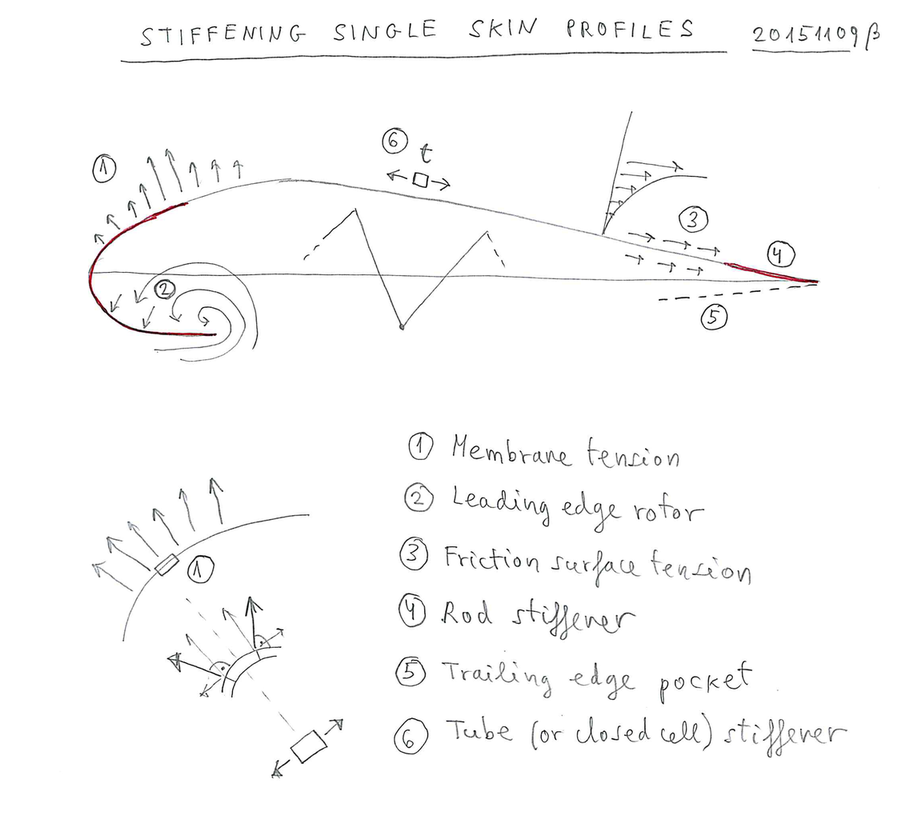 STIFFENING SINGLE SKIN PROFILES 20151109β
① ⑥ t
③
④
②
⑤
① Membrane tension
② Leading edge rotor
③ Friction surface tension
④ Rod stiffener
⑤ Trailing edge pocket
⑥ Tube (or closed cell) stiffener
①